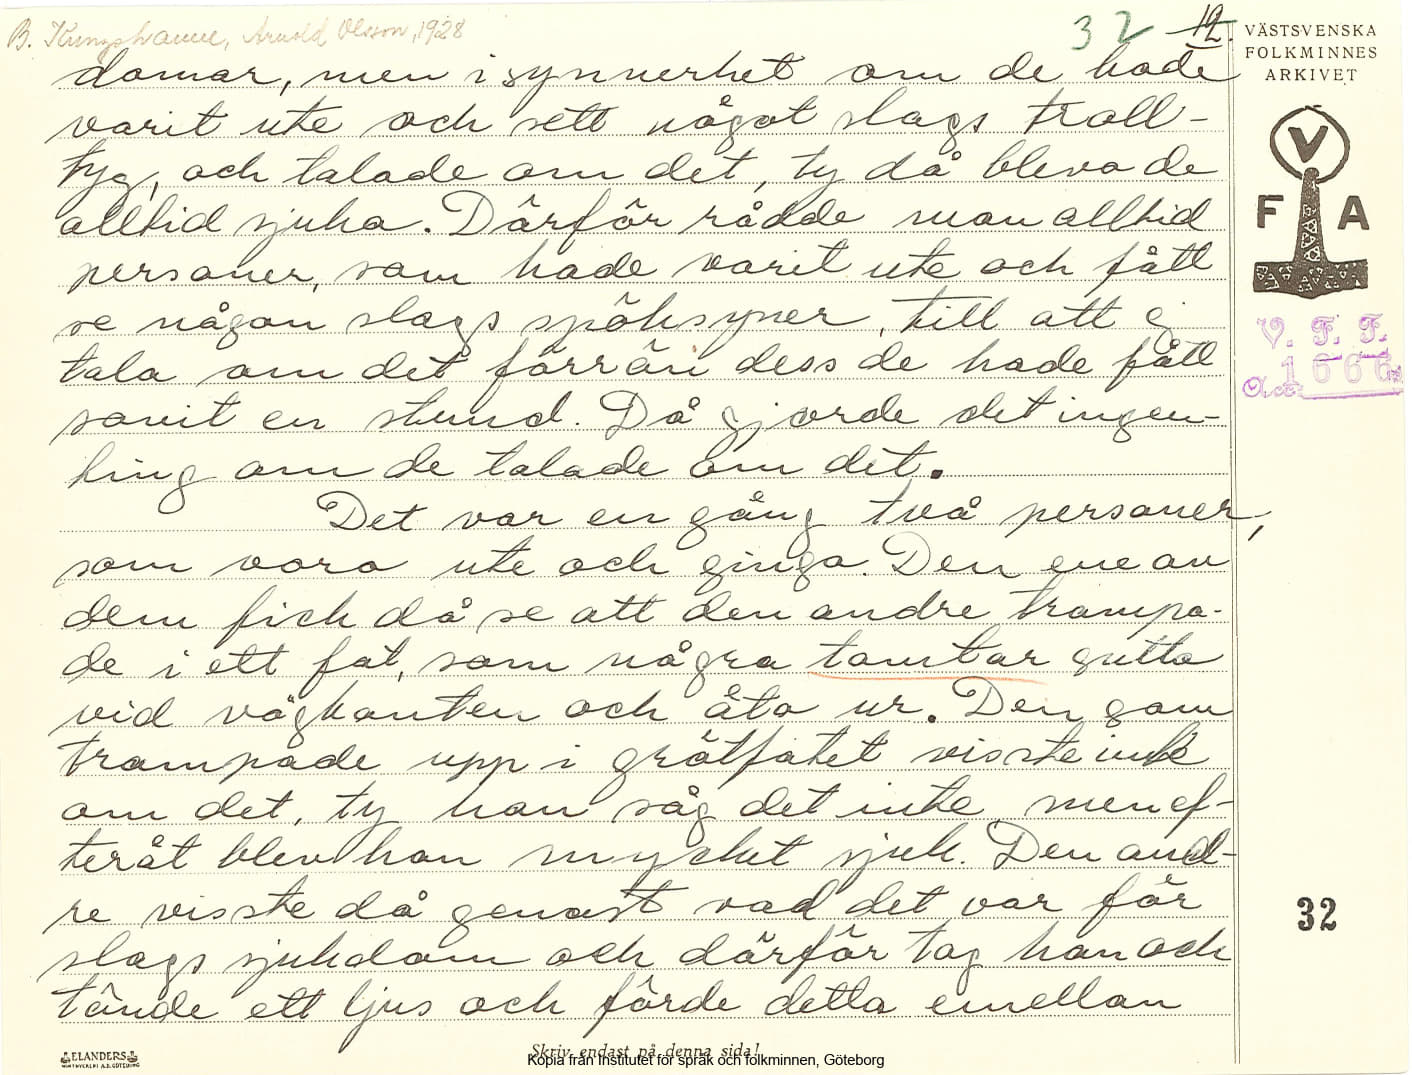 B. Kungshamn, Arnold Olsson, 1928
32 12.
VÄSTSVENSKA
FOLKMINNES
ARKIVET
domar, men i synnerhet om de hade
varit ute och sett något slags troll-
tyg, och talade om det, ty då blevo de
alltid sjuka. Därför rådde man alltid
personer, som hade varit ute och fått
se någon slags spöksyner, till att ej
tala om det förrän dess de hade fått
sovit en stund. Då gjorde det ingen-
ting om de talade om det.
Det var en gång två personer,
som voro ute och gingo. Den ene av
dem fick då se att den andre trampa-
de i ett fat, som några tomtar sutto
vid vägkanten och åto ur. Den som
trampade upp i grötfatet visste inte
om det, ty han såg det inte, men ef-
teråt blev han mycket sjuk. Den and-
re visste då genast vad det var för
slags sjukdom och därför tog han och
tände ett ljus och förde detta emellan
V
F A
V. F. F.
Acc. 1666
32
ELANDERS
Skriv endast på denna sida!
Kopia från Institutet för språk och folkminnen, Göteborg